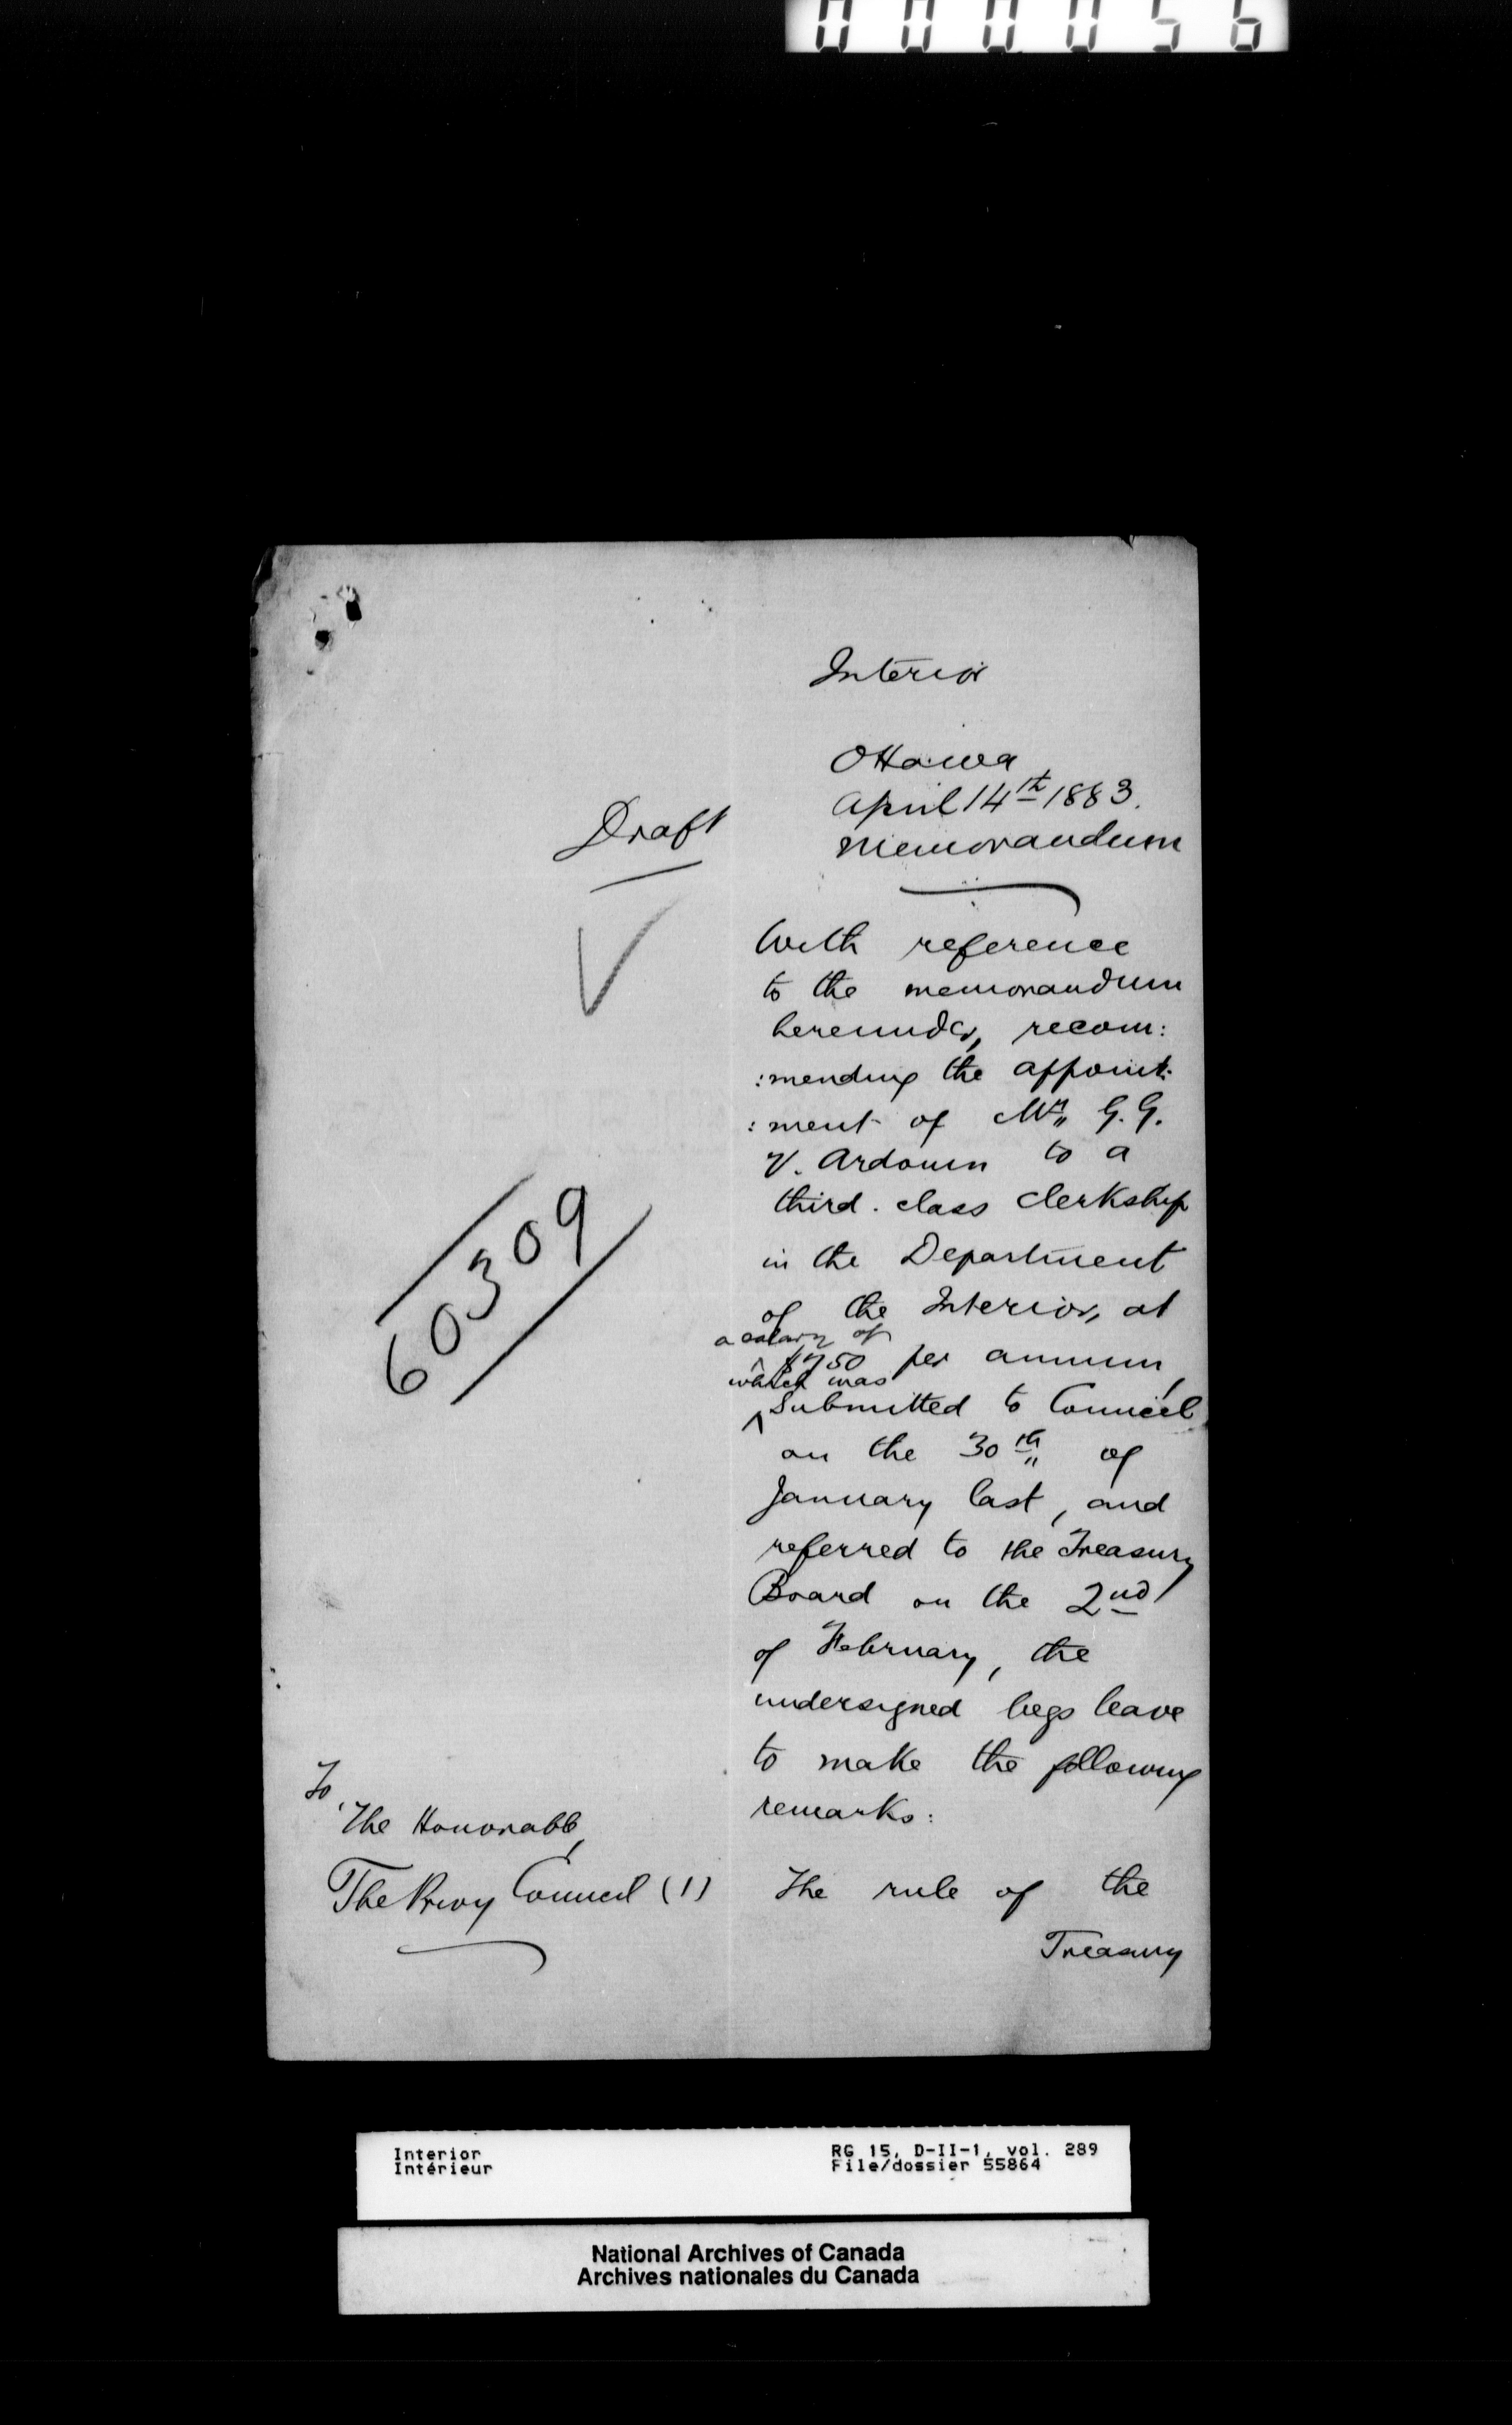 000056
Interior
Ottawa,
April 14th 1883.
Draft
Memorandum
With reference
to the memorandum
hereunder, recom:
:mending the appoint:
:ment of Mr. G. G.
V. Ardouin to a
third. class Clerkship
in the Department
of the Interior, at
a salary of
^ $750 per annum,
which was
^ Submitted to Council
on the 30th of
January last, and
referred to the Treasury
Board on the 2nd
of February, the
undersigned begs leave
to make the following
remarks:
60309
To,
The Honorable,
The Privy Council (1)
The rule of the
Treasury
Interior
Intérieur
RG 15, D-II-1, vol. 289
File/dossier 55864
National Archives of Canada
Archives nationales du Canada